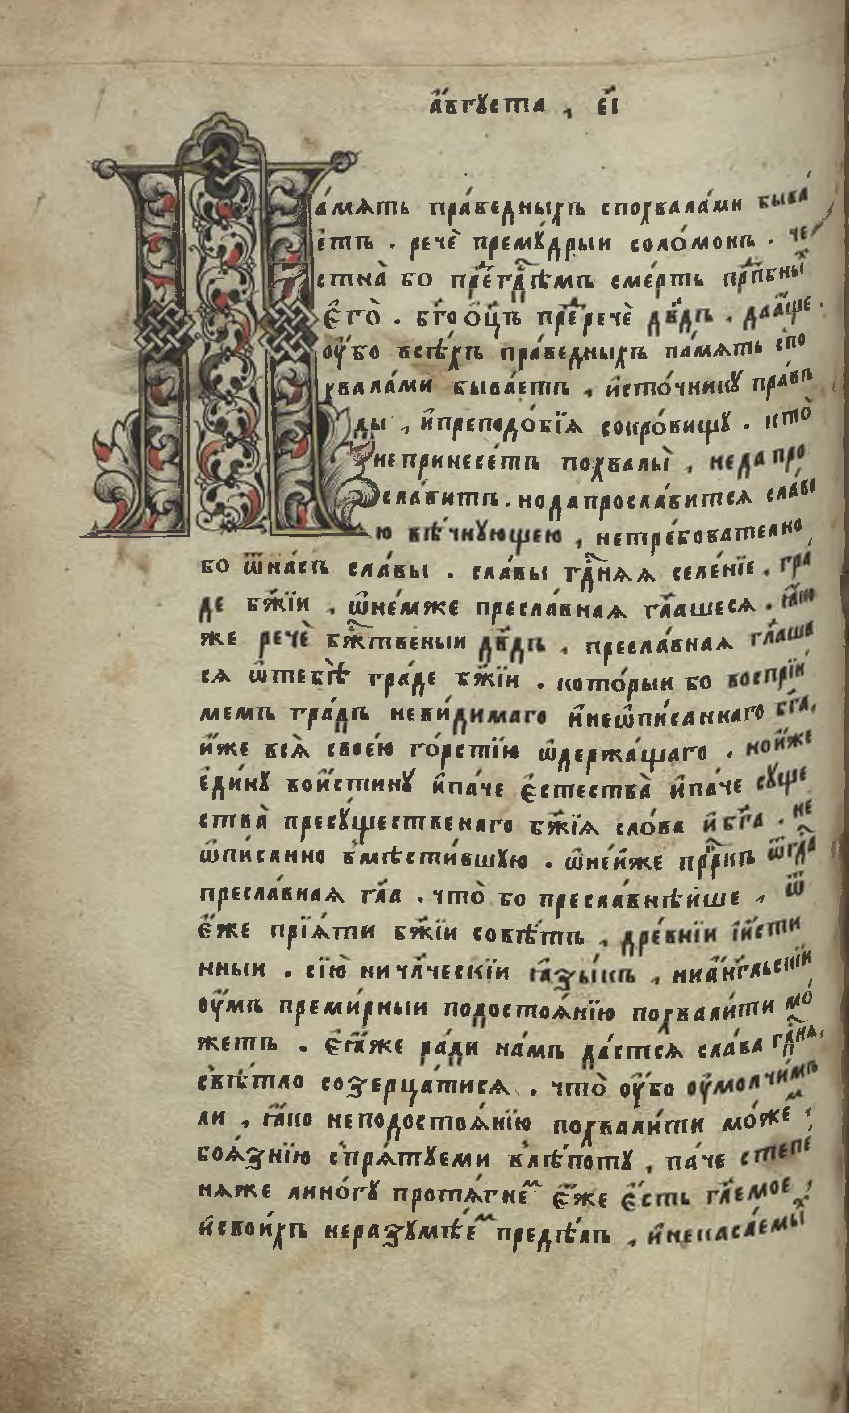 а҆́вгꙋста , є҃і
Па́мѧть пра́ведныхъ спохвала́ми быва
е́тъ . речѐ премꙋ́дрыи соломо́нъ . че
стна̀ бо пре́гдⷭ҇ѣмъ сме́рть прпⷣбныⷯ
є҆гѻ̀ . бг҃оѻц҃ъ прⷣеречѐ дв҃дъ . даа́ще .
оу҆́бо всѣ́хъ пра́ведныхъ па́мѧть спо
хвала́ми быва́етъ , и҆сто́чникꙋ пра́въ
ды , и҆преподо́бїѧ сокро́вищꙋ . кто̀
непринесе́тъ похвалы̀ , неда про
сла́витъ . нодапросла́витсѧ сла́вы
ю вѣ́чнꙋющею , нетре́бователно
бо ѿна́съ сла́вы . сла́вы гдⷭ҇нѧѧ селе́нїе . гра
де бж҃їи , ѡ҆не́мже пресла́внаѧ гл҃ашесѧ . ꙗ҆́ко
же речѐ бжⷭ҇твеныи дв҃дъ , пресла́внаѧ гл҃аша
сѧ ѡ҆тебѣ̀ гра́де бж҃їи . кото́рыи бо воспрїи́
мемъ гра́дъ неви́димаго и҆неѡ҆пи́саннаго бг҃а,
и҆́же всѧ̀ свое́ю го́рстїю ѡ҆держа́щаго . нои҆́же
є҆ди́нꙋ вои́стинꙋ и҆па́че є҆стества̀ и҆па́че сꙋще
ства̀ пресꙋ́щественаго бж҃їѧ сло́ва и҆бг҃а . не
ѡ҆пи́санно вмѣсти́вшꙋю . ѡ҆не́йже прⷪ҇ркъ ѿгдⷭ҇а
пресла́внаѧ гл҃а . что̀ бо пресла́внѣйше , ѿ
є҆́же прїѧ́ти бж҃їи совѣ́тъ , дре́внїи и҆и́сти
нныи . сїю̀ ничл҃ческїи ꙗ҆зы́къ , ниа҆́нгльскїи
оу҆́мъ преми́рныи подостоѧ́нїю похвали́ти мо́
жетъ . є҆ѧ́же ра́ди на́мъ да́стсѧ сла́ва гдⷭ҇нѧ,
свѣ́тло созерца́тисѧ . что̀ оу҆́бо оу҆молчи́мъ
ли , ꙗ҆́ко неподостоѧ́нїю похвали́ти мо́жеⷨ ,
боѧ́знїю спрѧ́тꙋеми влѣ́потꙋ , па́че степе
нѧже лино́гꙋ протѧ́гнеⷨ є҆́же є҆́сть гл҃емое ,
и҆свои́хъ неразꙋмѣ́еⷨ предѣ́лъ , и҆ненаса́емыⷯ